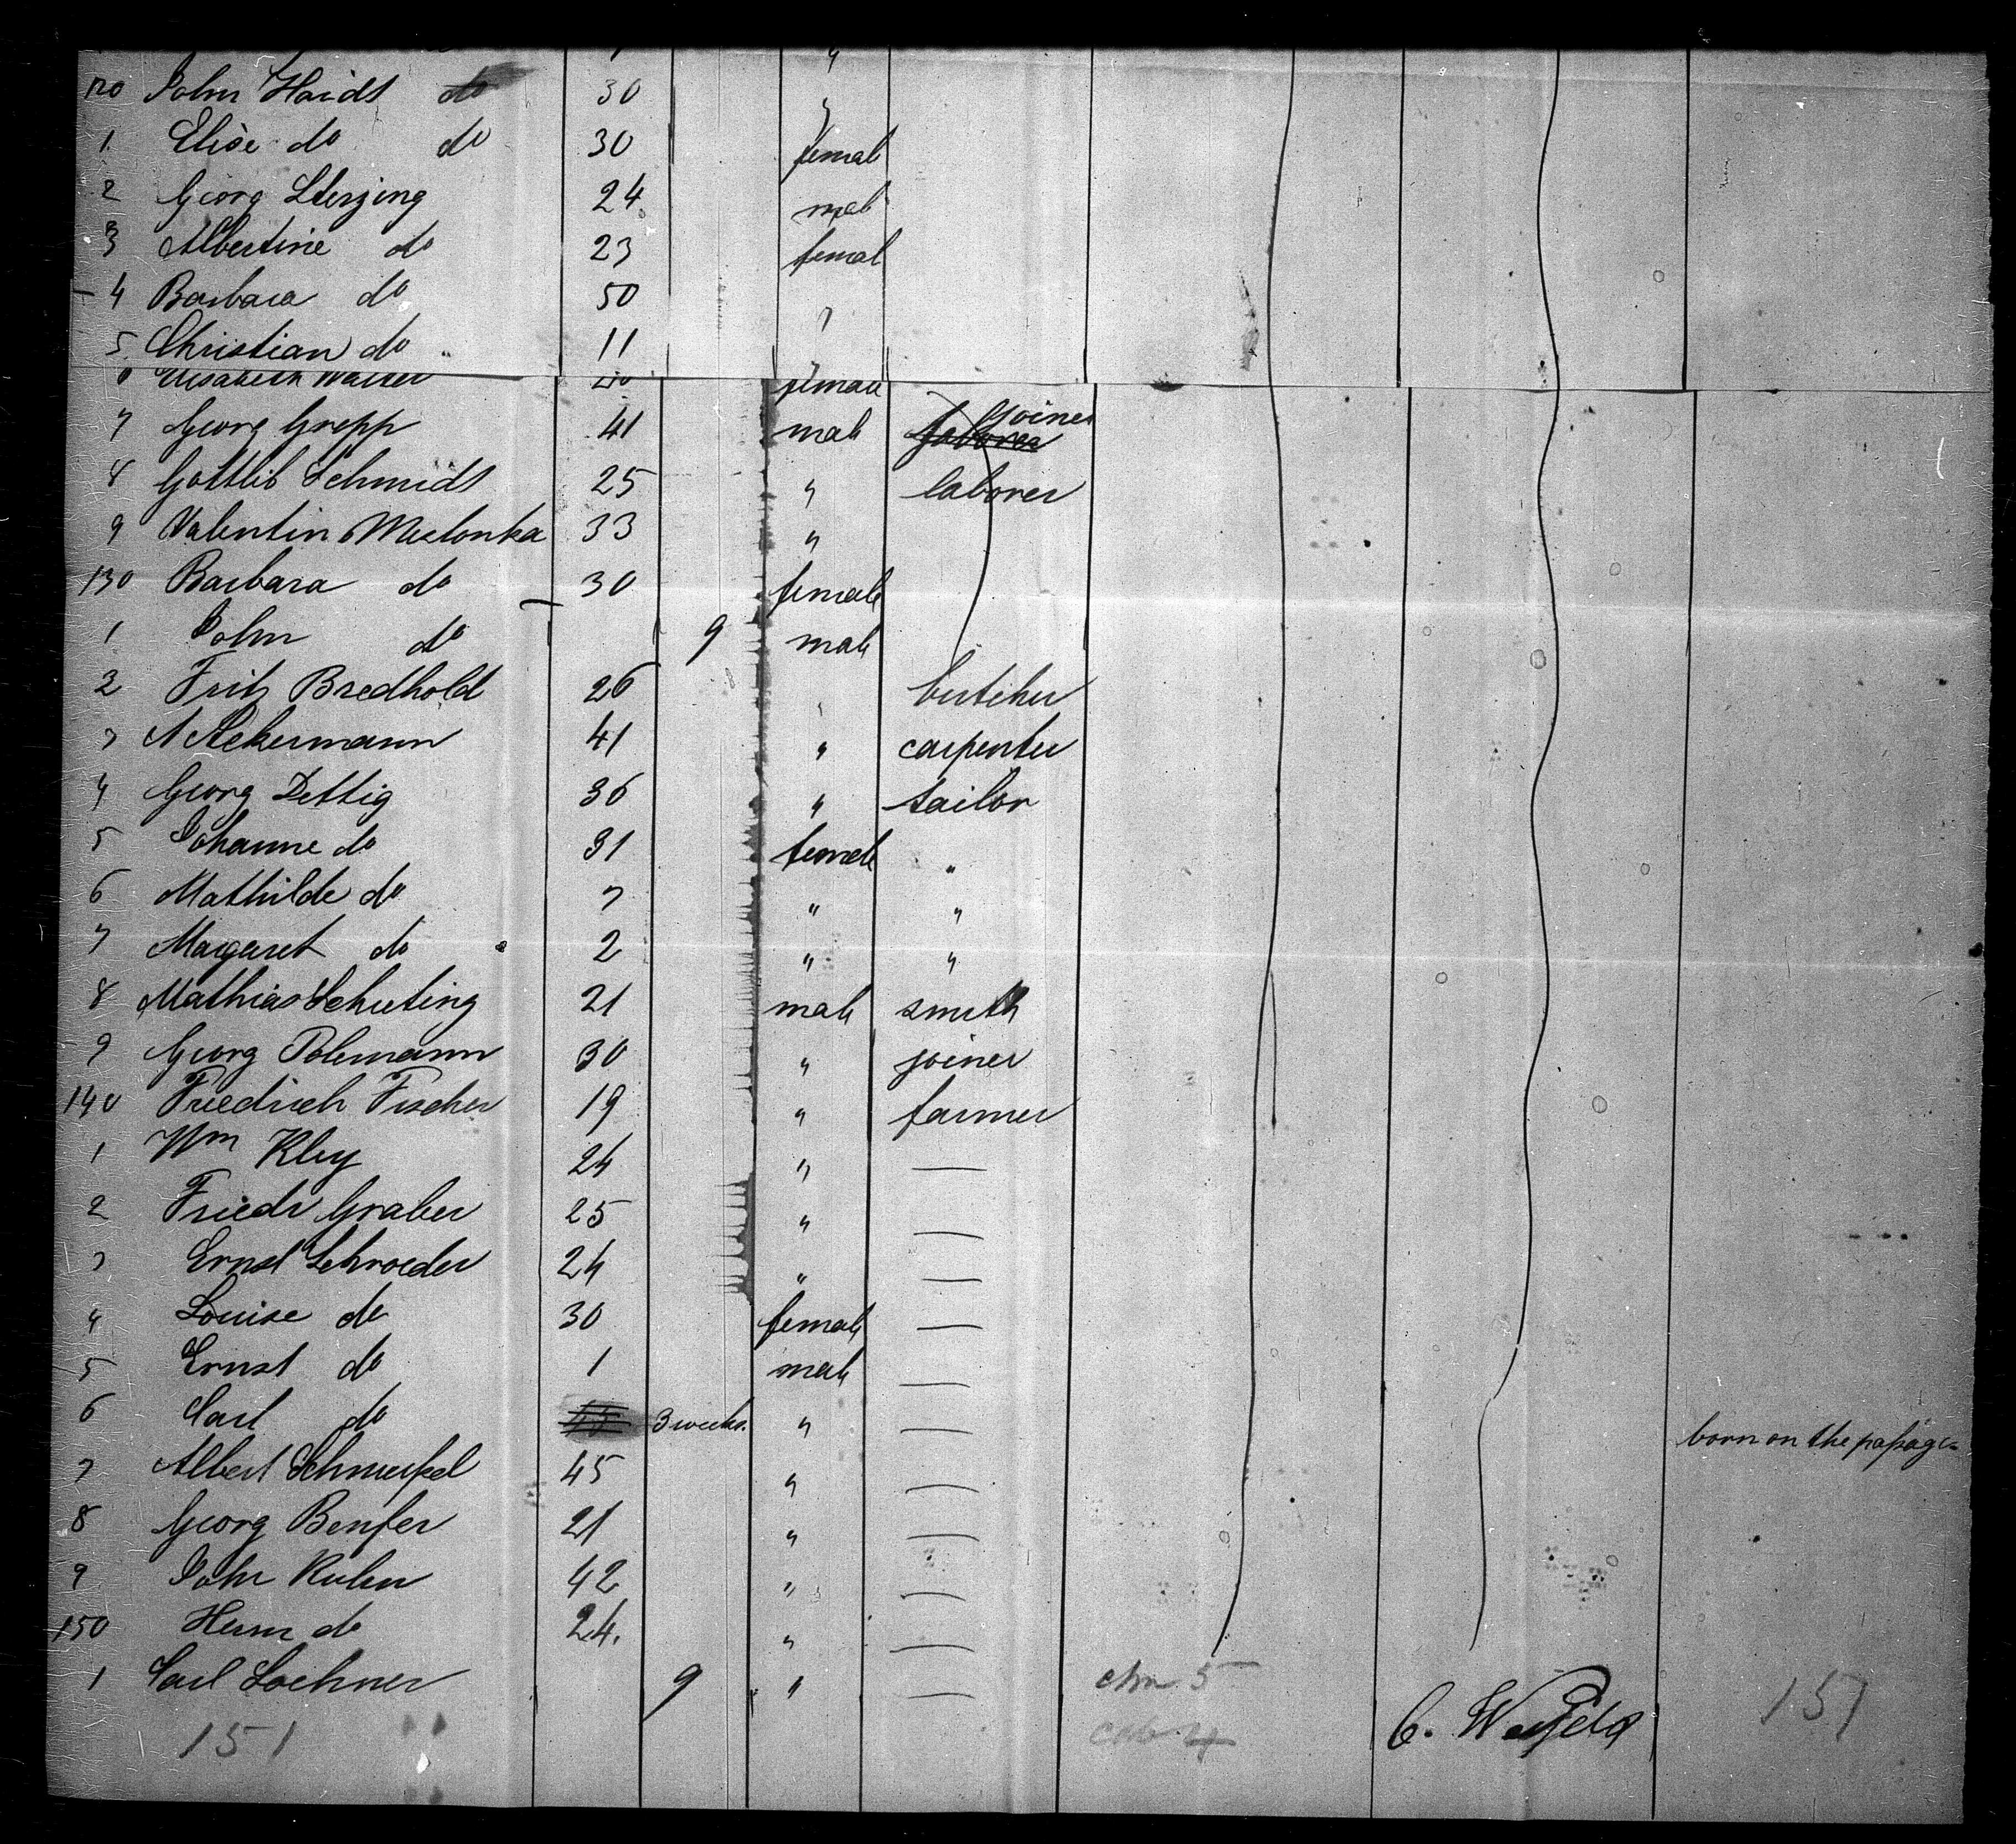 120 John Haidt do 30 "
1 Elise do do 30 femal
2 Georg Sterzing 24 mal
3 Albertine do 23 femal
4 Barbara do 50 "
5 Christian do 11
6 Elisabeth Walter 20 female
7 Georg Grepp 41 male Joiner
8 Gottlib Schmidt 25 " laborer
9 Valentin 33 "
130 Barbara do 30 female
1 John do 9 male
2 Fritz Bredhold 26 " butcher
3 A Ackermann 41 " carpenter
4 Georg Dettig 36 " tailor
5 Johanne do 31 female "
6 Mathilde do 7 " "
7 Margaret do 2 " "
8 Mathias Schuting 21 male smith
9 Georg Polemann 30 " joiner
140 Friedrich Fischer 19 " farmer
1 Wm Kley 24 " —
2 Friedr Graber 25 " —
3 Ernst Schroeder 24 " —
4 Louise do 30 female —
5 Ernst do 1 male —
6 Carl do 3 weeks. " — born on the passage
7 Albert 45 " —
8 Georg Benfer 21 " —
9 John 42 " —
150 Herm do 24. " —
1 Carl Lochner 9 " —
151
C.
151